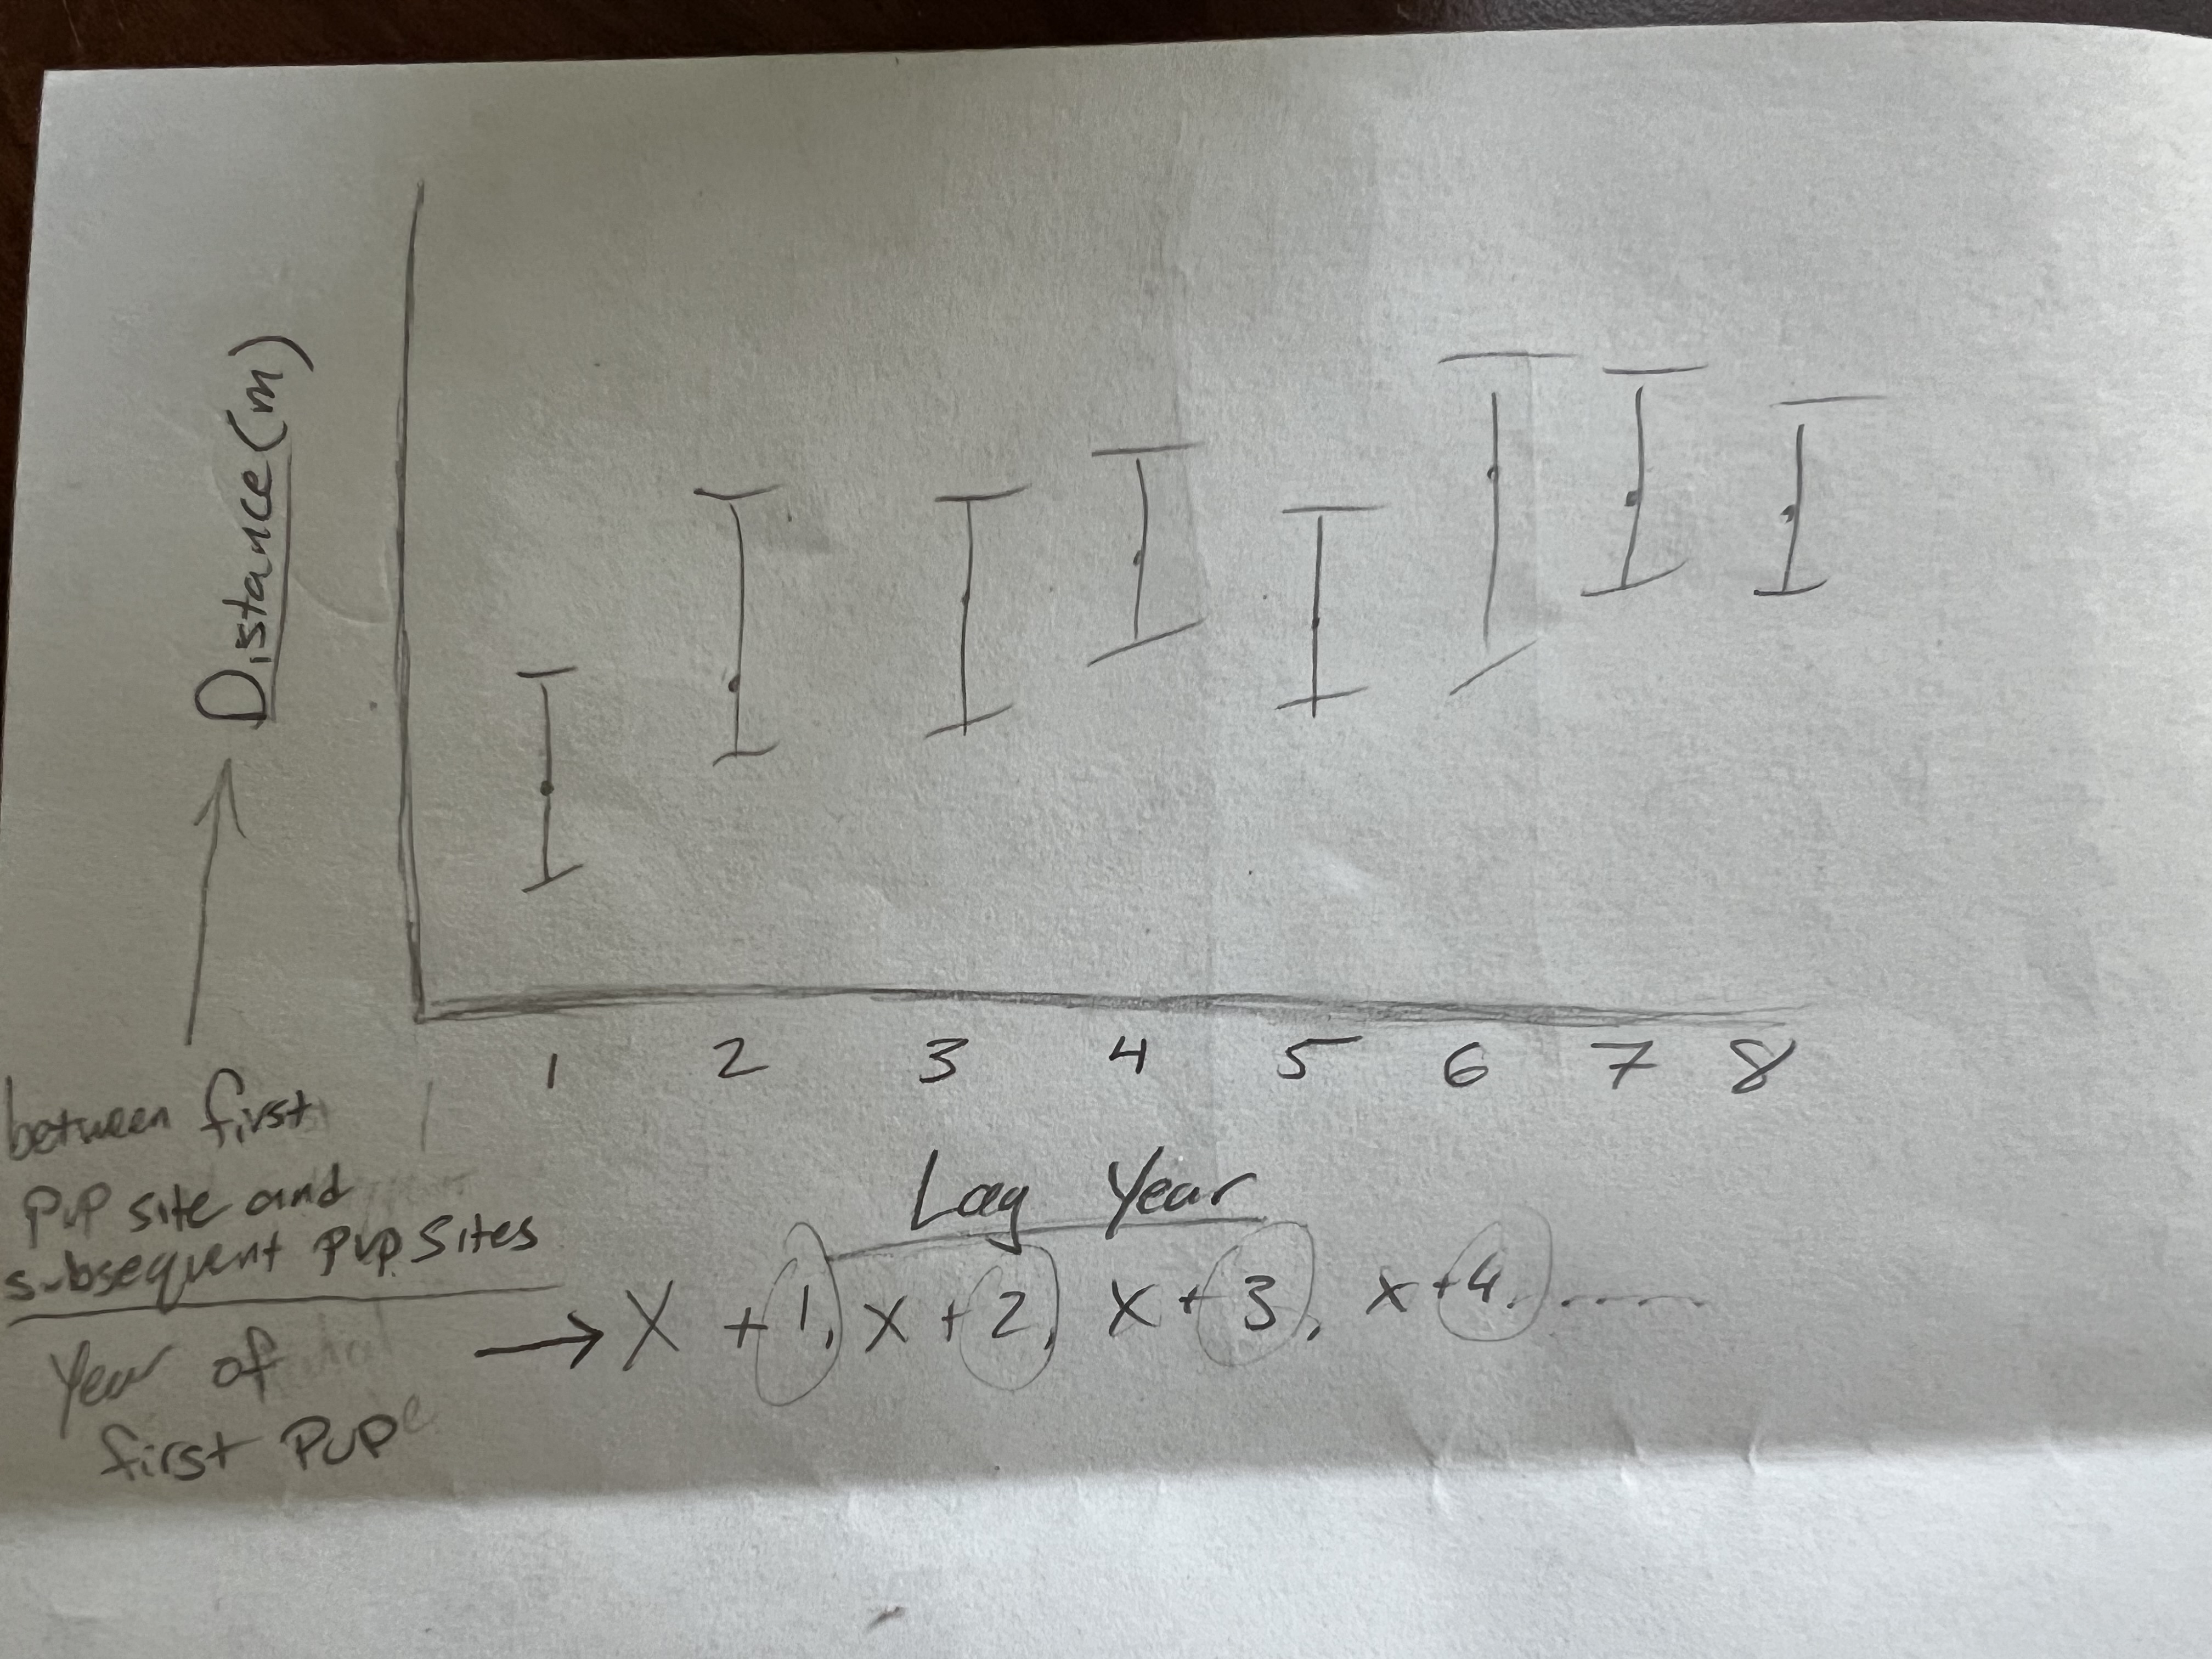 Distance (m)
1 2 3 4 5 6 7 8
between first
pup site and
subsequent pup sites
Lag Year
Year of
first PUP
→ X +1, x +2, x +3, x +4, .....